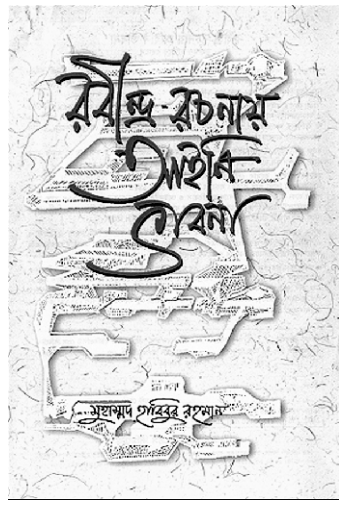 রবীন্দ্র-রচনায়
আইনি
ভাবনা
মুহাম্মদ হাবিবুর রহমান